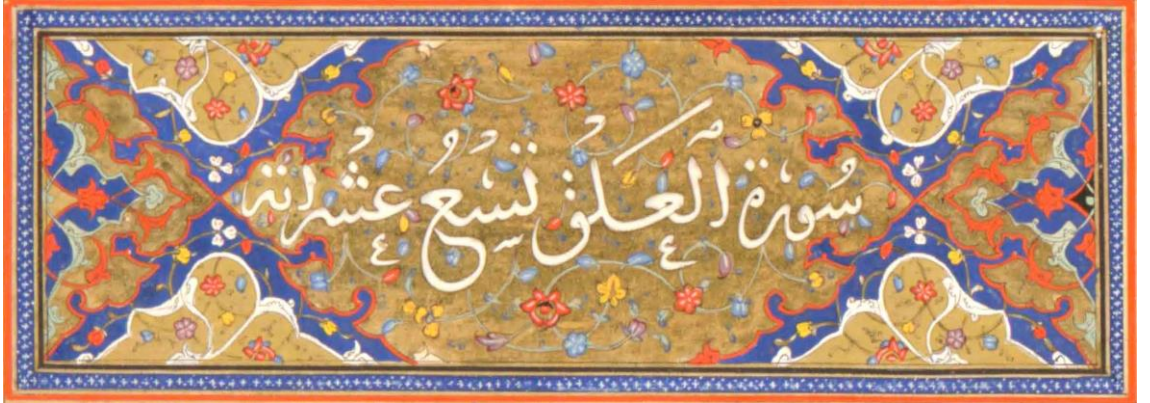 سُورة العلق تسعُ عشر اية